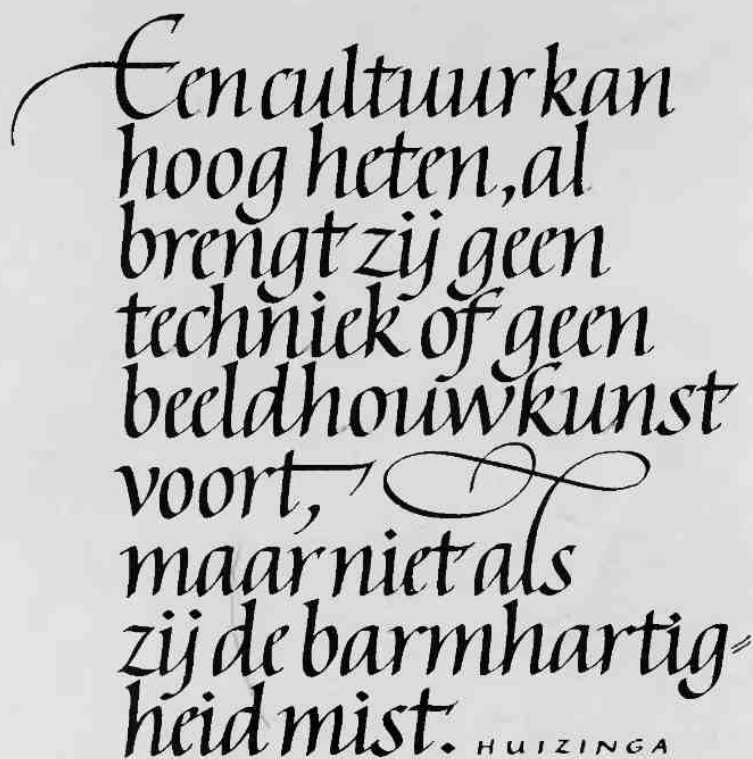 Een cultuur kan
hoog heten, al
brengt zij geen
techniek of geen
beeldhouwkunst
voort,
maar niet als
zij de barmhartig=
heid mist. HUIZINGA